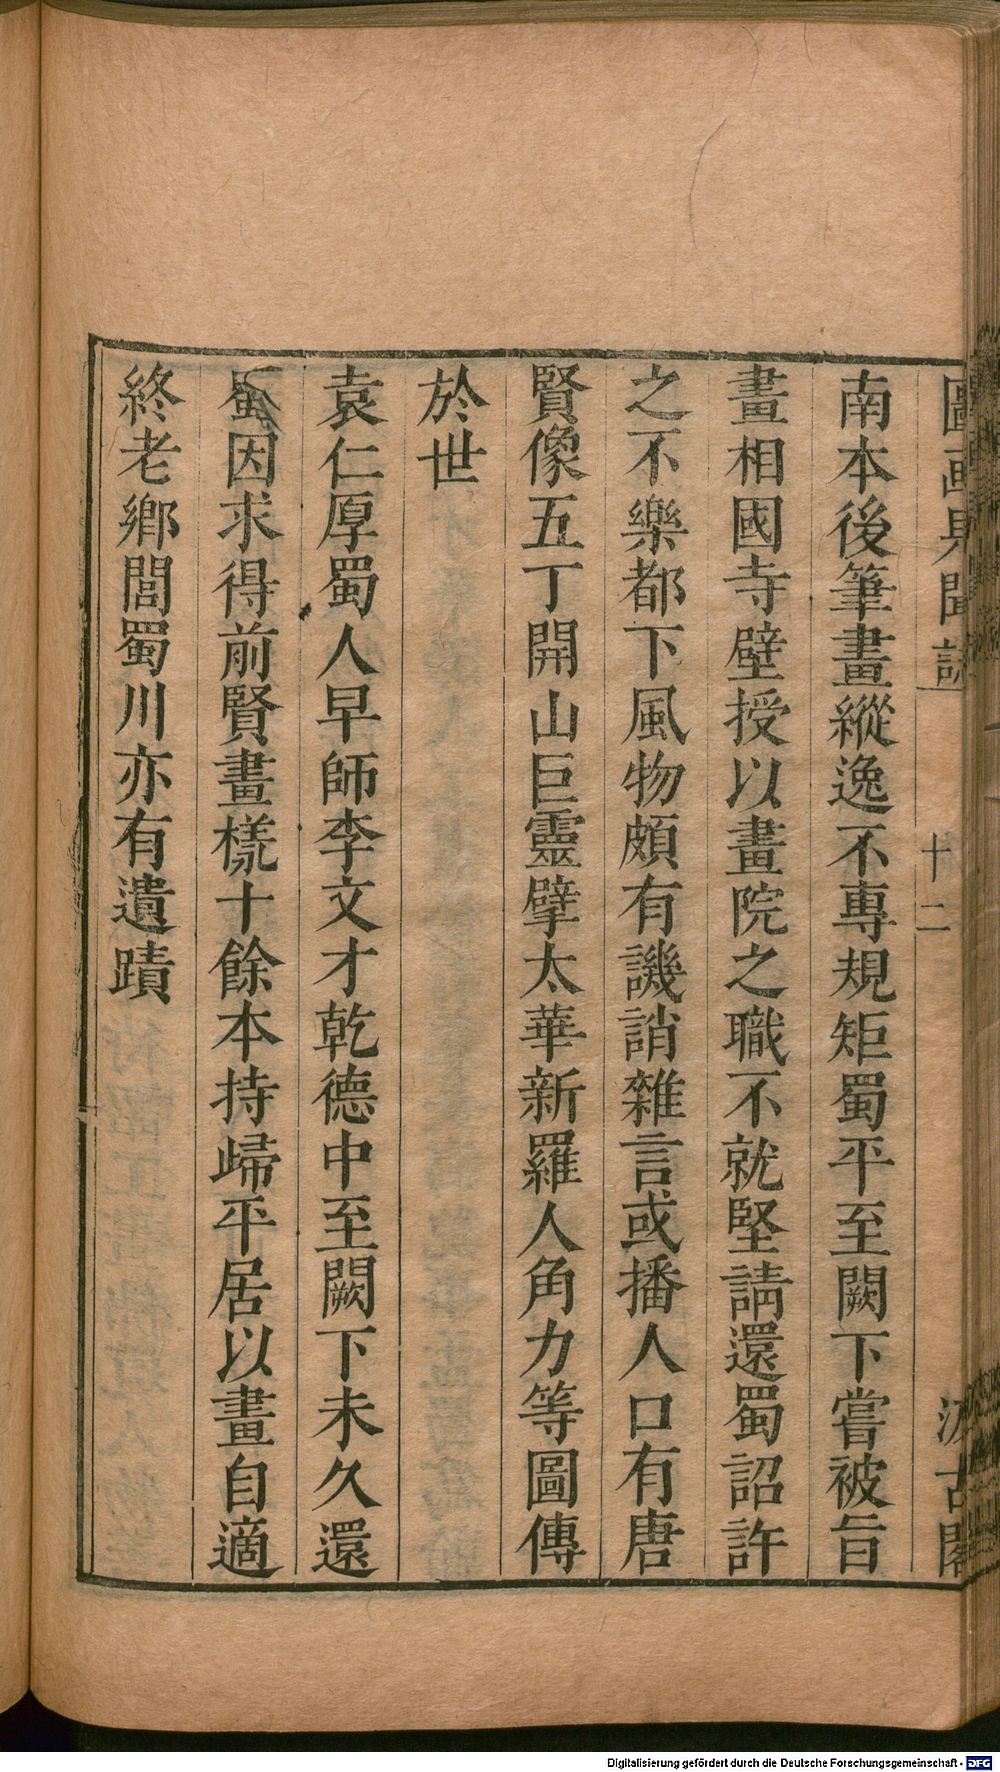 圖畫見聞誌
十二
汲古閣
南本後筆畫縱逸不專規矩蜀平至闕下嘗被旨
畫相國寺壁授以畫院之職不就堅請還蜀詔許
之不樂都下風物頗有譏誚雜言或播人口有唐
賢像五丁開山巨靈擘太華新羅人角力等圖傳
於世
袁仁厚蜀人早師李文才乾德中至闕下未久還
蜀因求得前賢畫樣十餘本持歸平居以畫自適
終老鄉閭蜀川亦有遺蹟
Digitalisierung gefördert durch die Deutsche Forschungsgemeinschaft - DFG